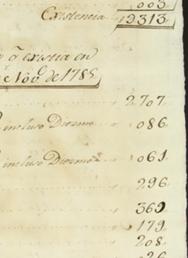 003
Existencia 12313
q existia en
de 1785
2707
incluso Diezmo 086
incluso Diezmo 061
296
369
179
208
026